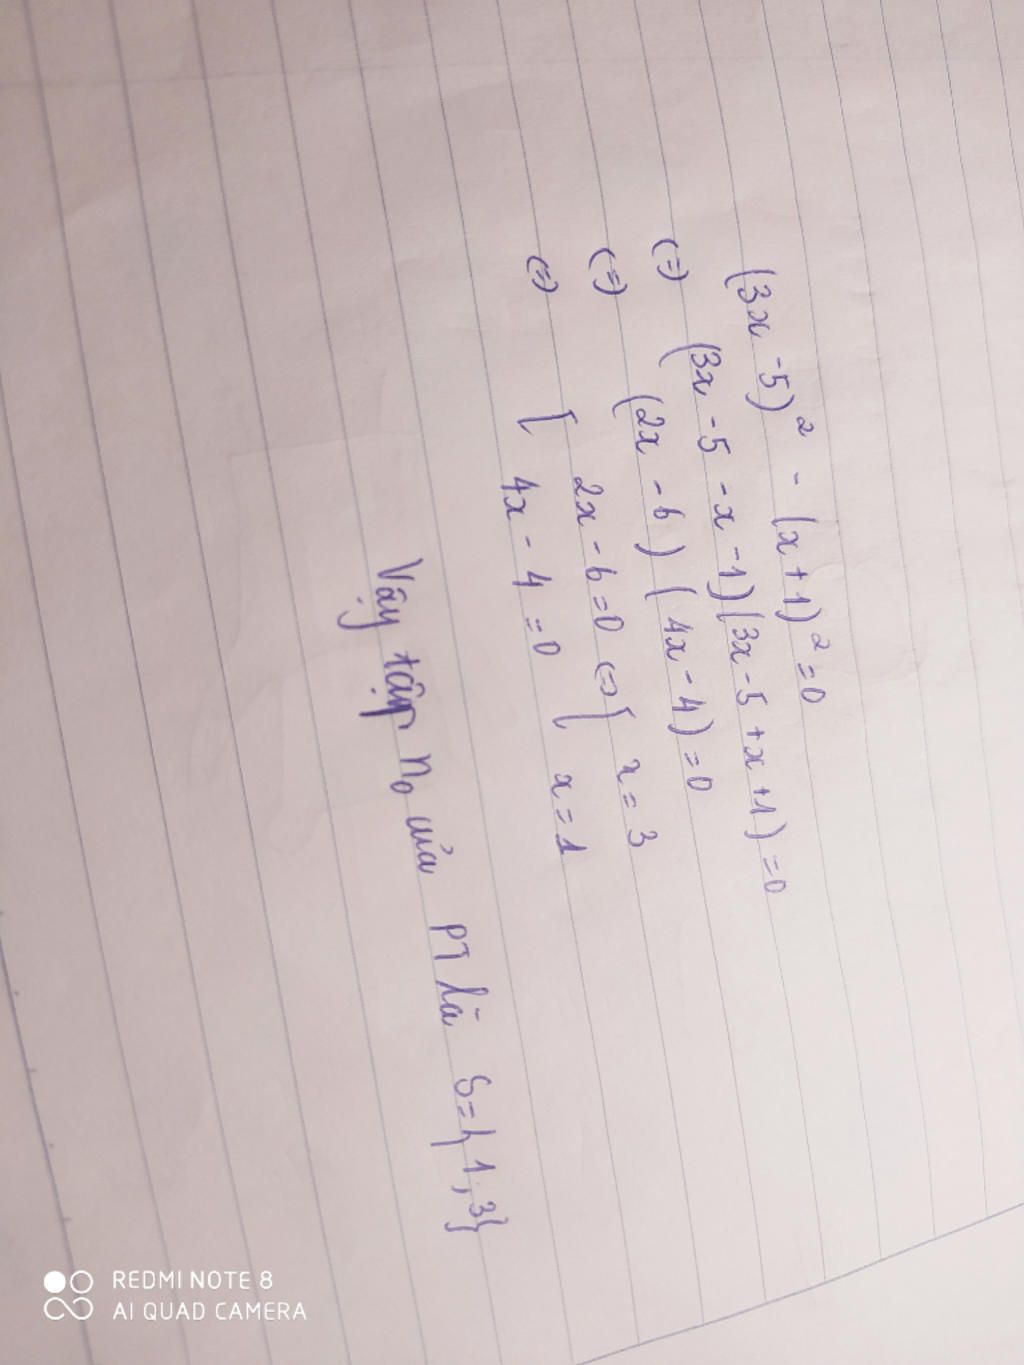 (3x - 5)² - (x + 1)² = 0
(=) (3x - 5 - x - 1)(3x - 5 + x + 1) = 0
(=) (2x - 6)(4x - 4) = 0
(=) [ 2x - 6 = 0 (=) [ x = 3
4x - 4 = 0 x = 1
Vậy tập n₀ của PT là S = {1; 3}
REDMI NOTE 8
AI QUAD CAMERA